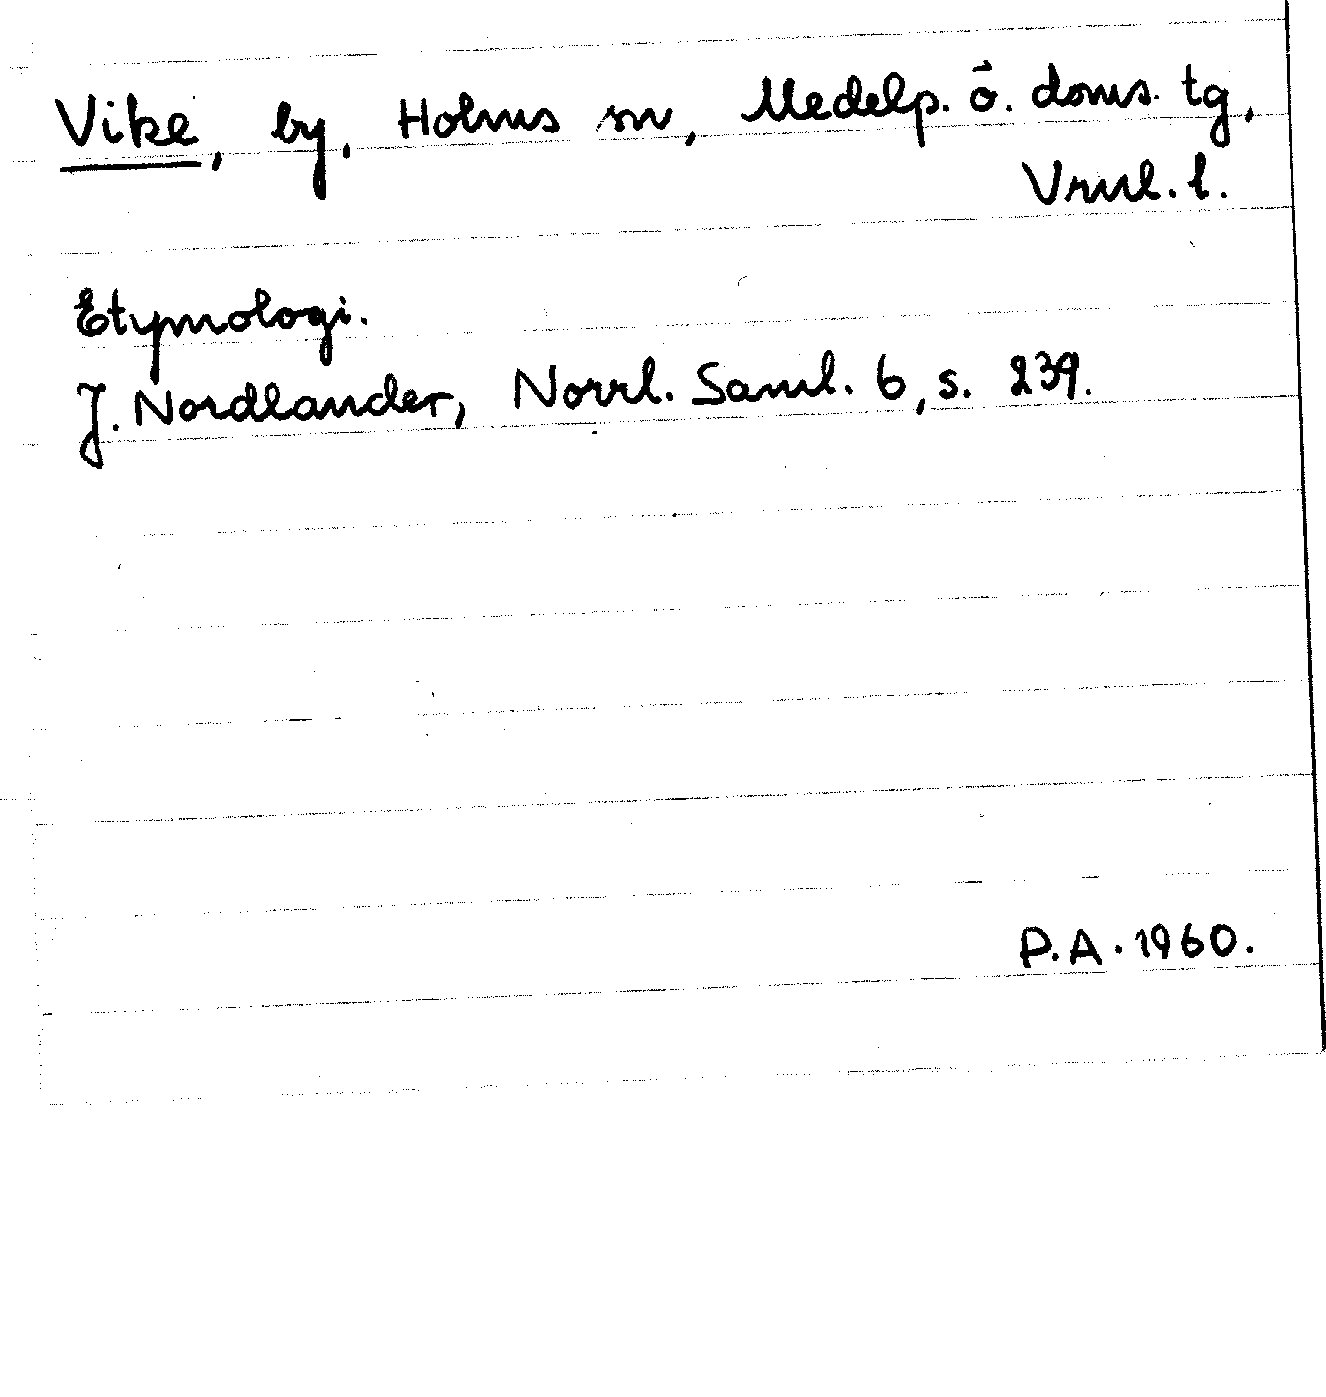 Vike, by, Holms sn, Medelp. ö. doms. tg,
Vrnl. l.
Etymologi.
J. Nordlander, Norrl. Saml. 6, s. 239.
P.A. 1960.